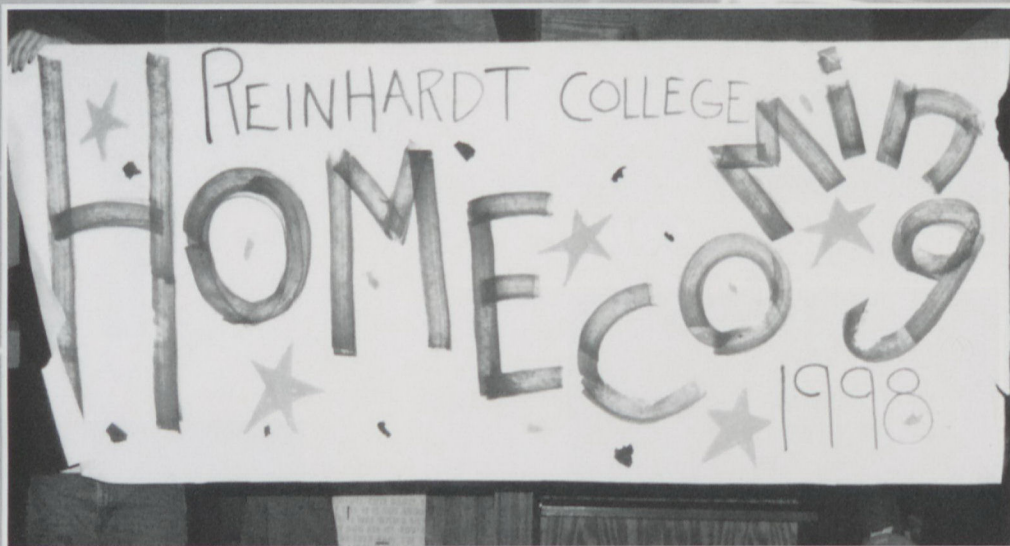 REINHARDT COLLEGE
HOMECOMING
1998